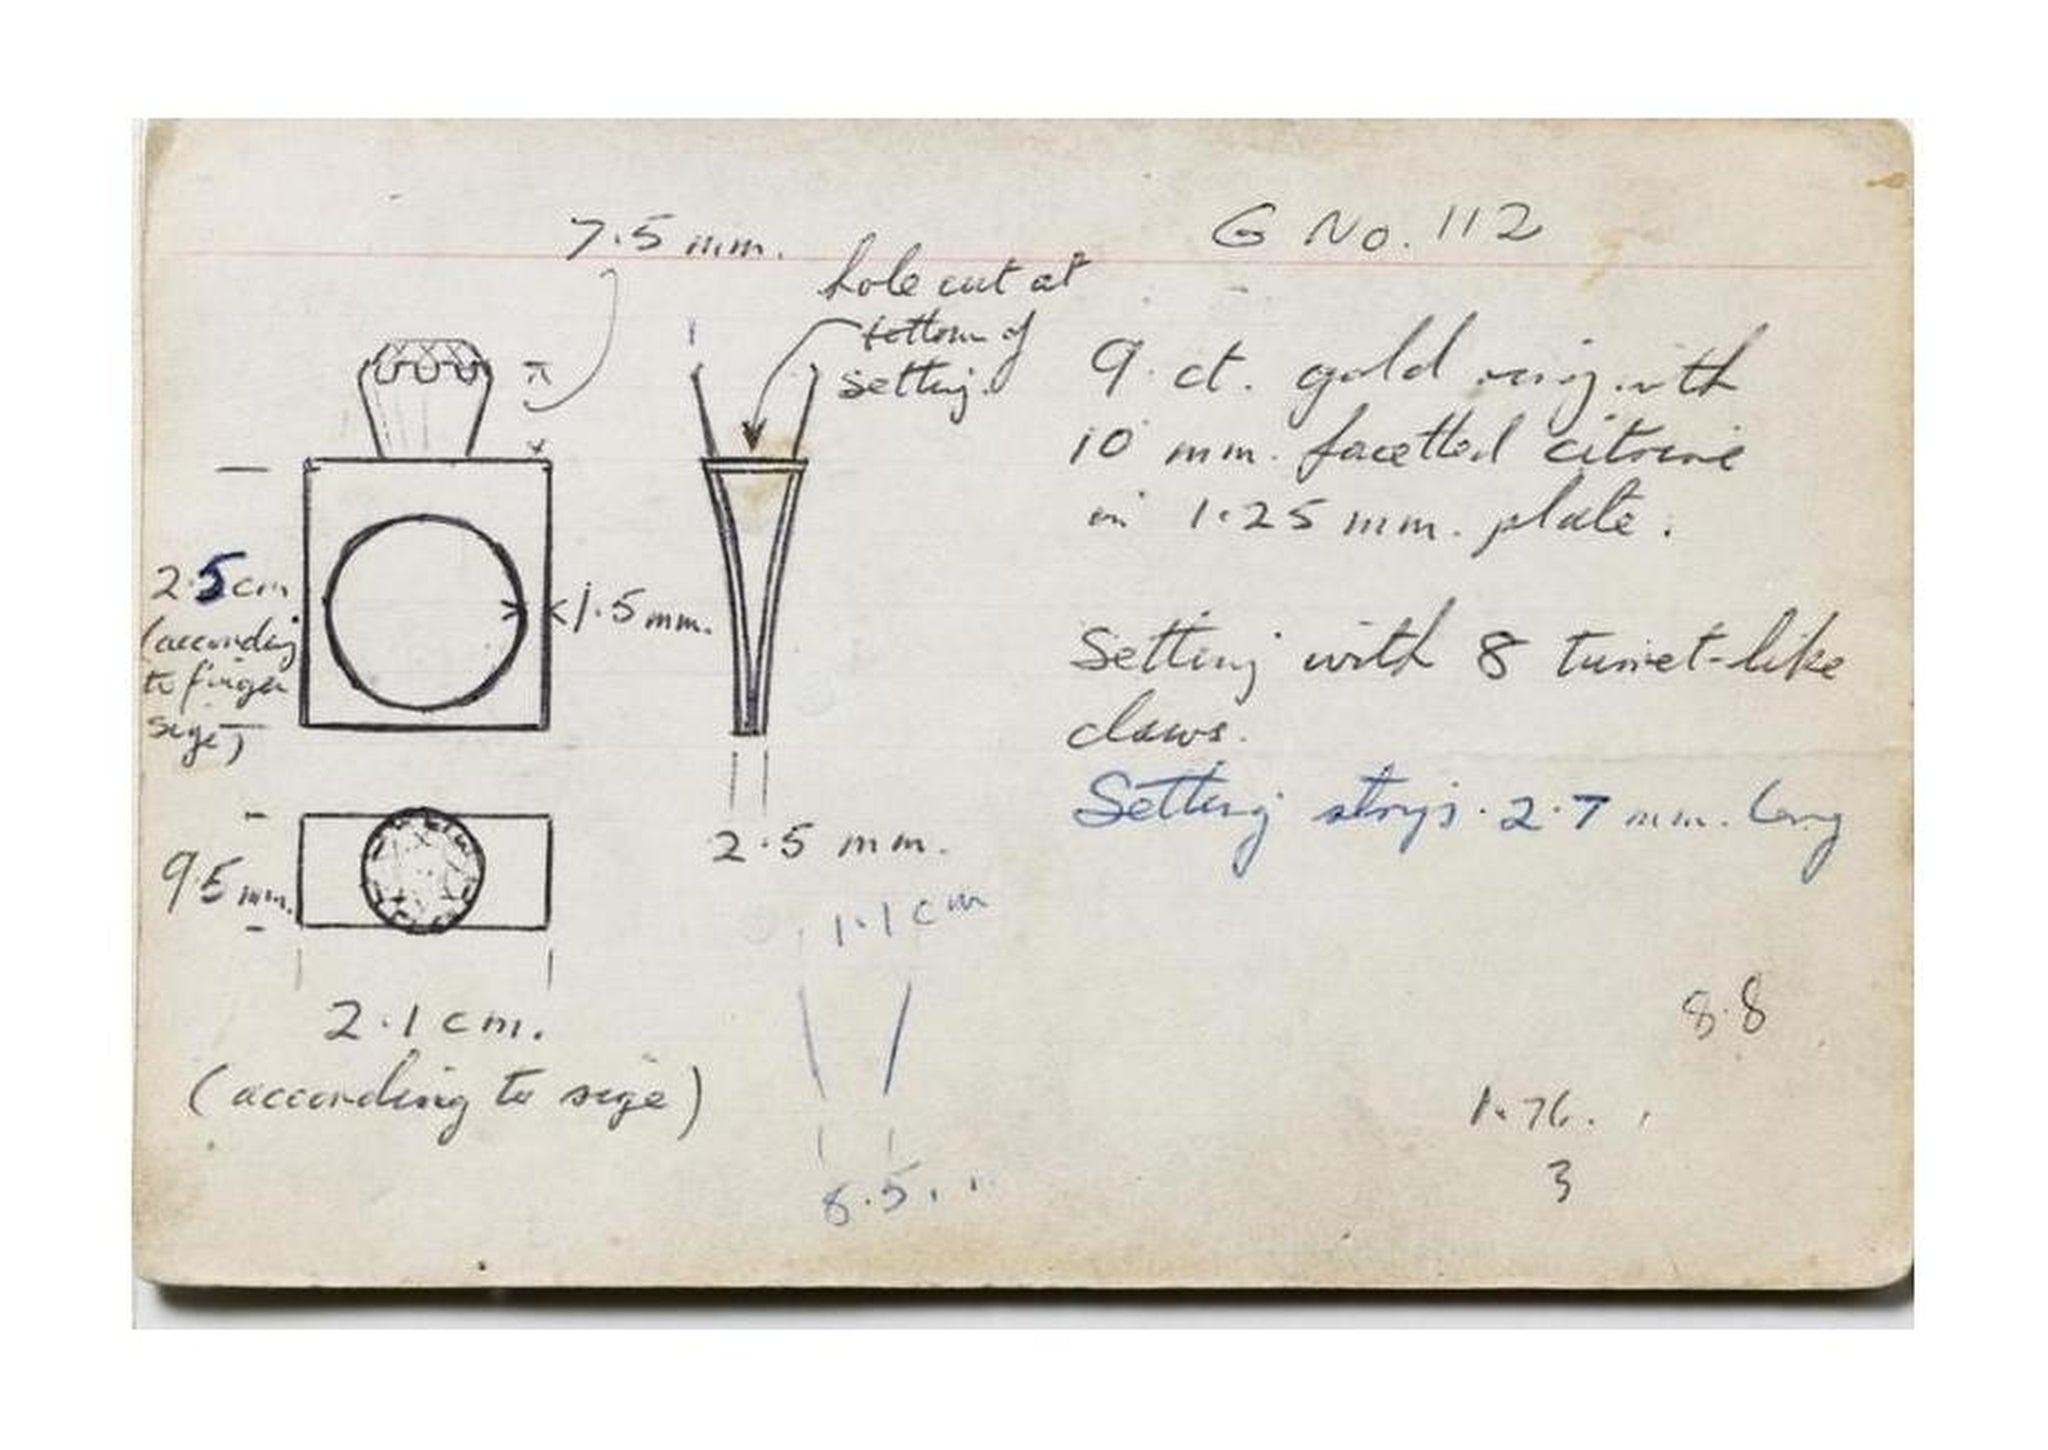 G No. 112
7.5 mm.
hole cut at
bottom of
setting.
9 ct. gold ring with
10 mm. facetted citrine
in 1.25 mm. plate.
2.5 cm
(according
to finger
size)
1.5 mm.
Setting with 8 turret-like
claws.
Setting strips 2.7 mm. long
9.5 mm.
2.5 mm.
1.1 cm
2.1 cm.
(according to size)
8.5
8.8
1.76.
3